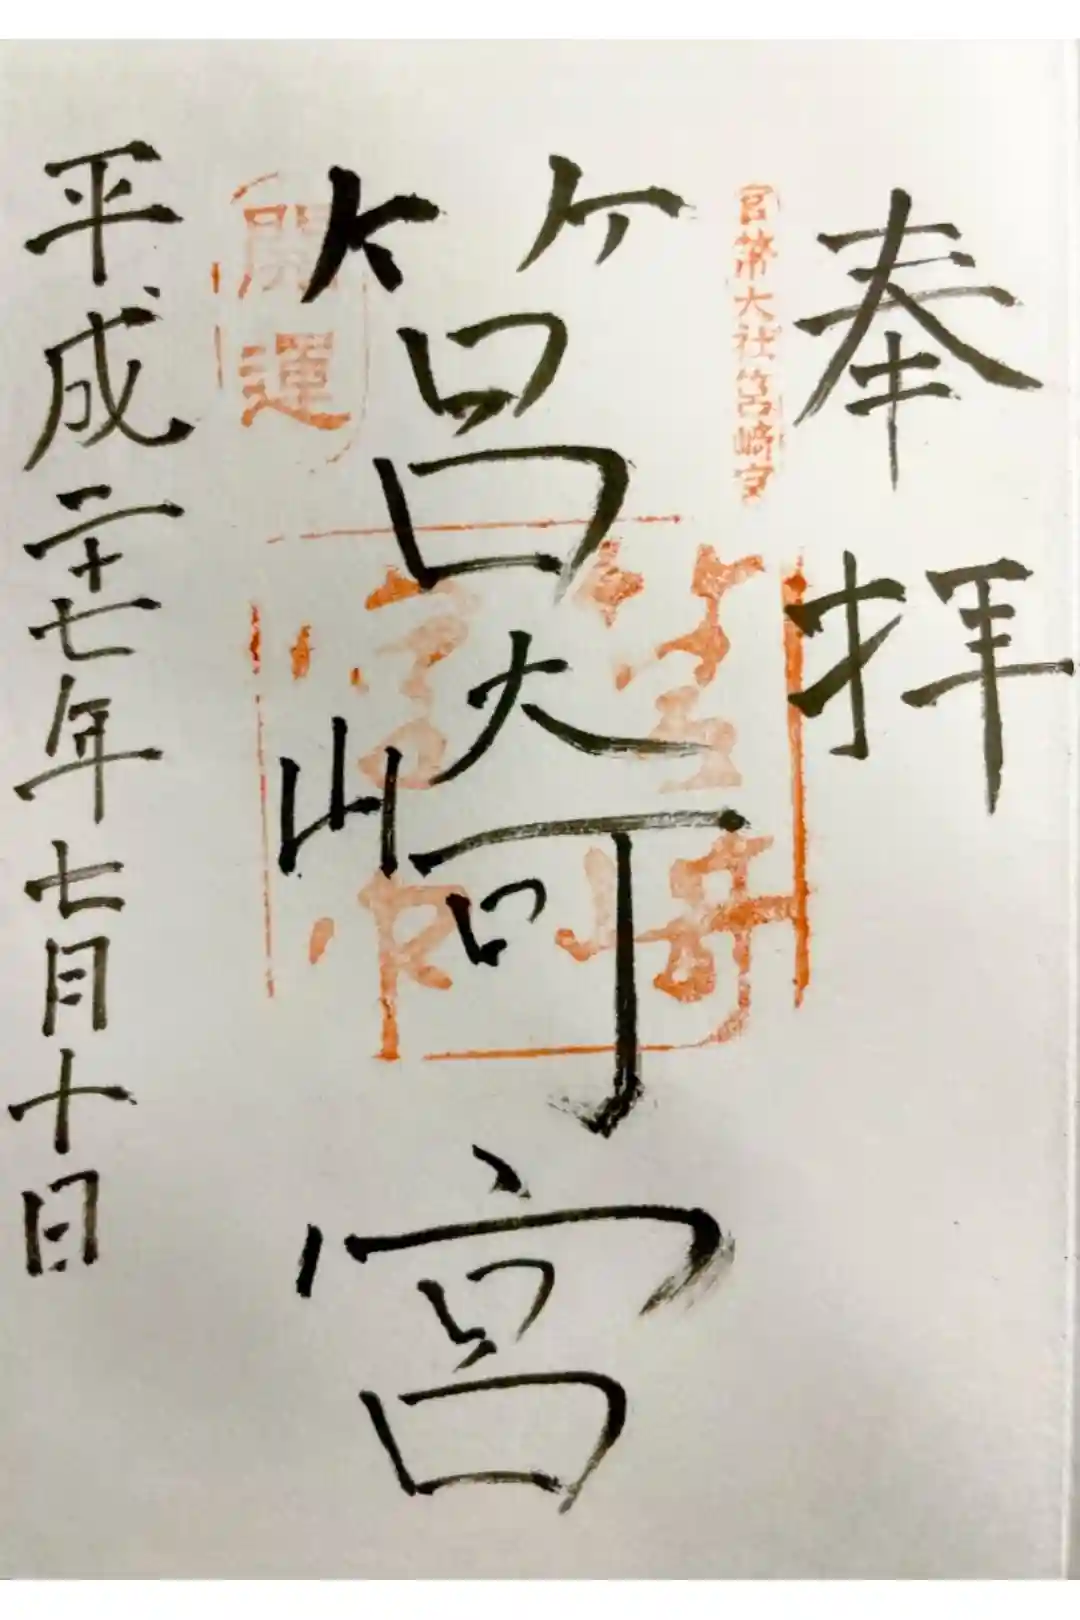 奉拝
官幣大社筥崎宮
筥崎宮
筥崎宮印
開運
平成二十七年七月十日